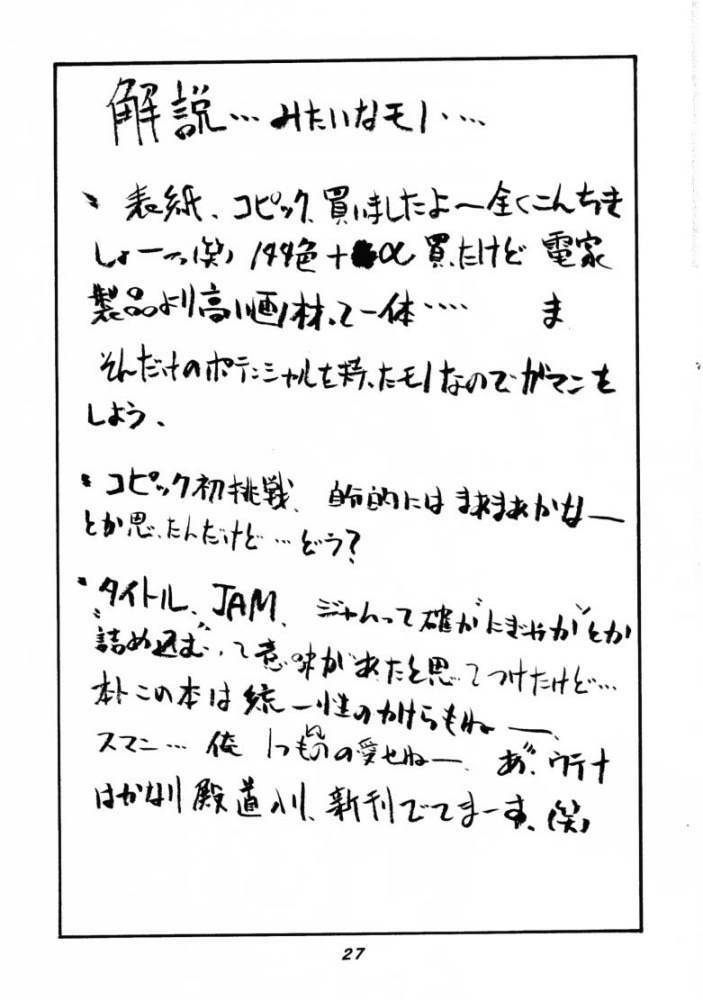 解説…みたいなモノ‥‥
表紙、コピック、買いましたよ～全くこんちき
しょーっ(笑) 144色+α買ったけど 電家
製品より高い画材って一体‥‥ ま
そんだけのポテンシャルを持ったモノなのでガマンを
しよう、
コピック初挑戦、自分的にはまあまあかなー
とか思ったんだけど…どう?
タイトル、JAM、ジャムって確か"にぎやか"とか
"詰め込む"って意味があったと思ってつけたけど…
本トこの本は統一性のかけらもねー、
スマン… 俺 の愛せねー、 あ、ウテナ
はかなり殿道入り、新刊でてまーす、(笑)
27